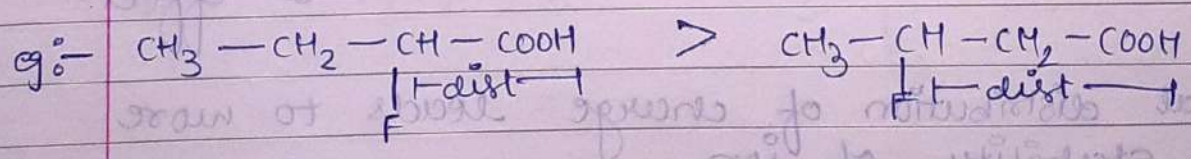 eg:- CH3 — CH2 — CH — COOH > CH3 — CH — CH2 — COOH
| ⊢dist⊣ | ⊢dist.⊣
F F